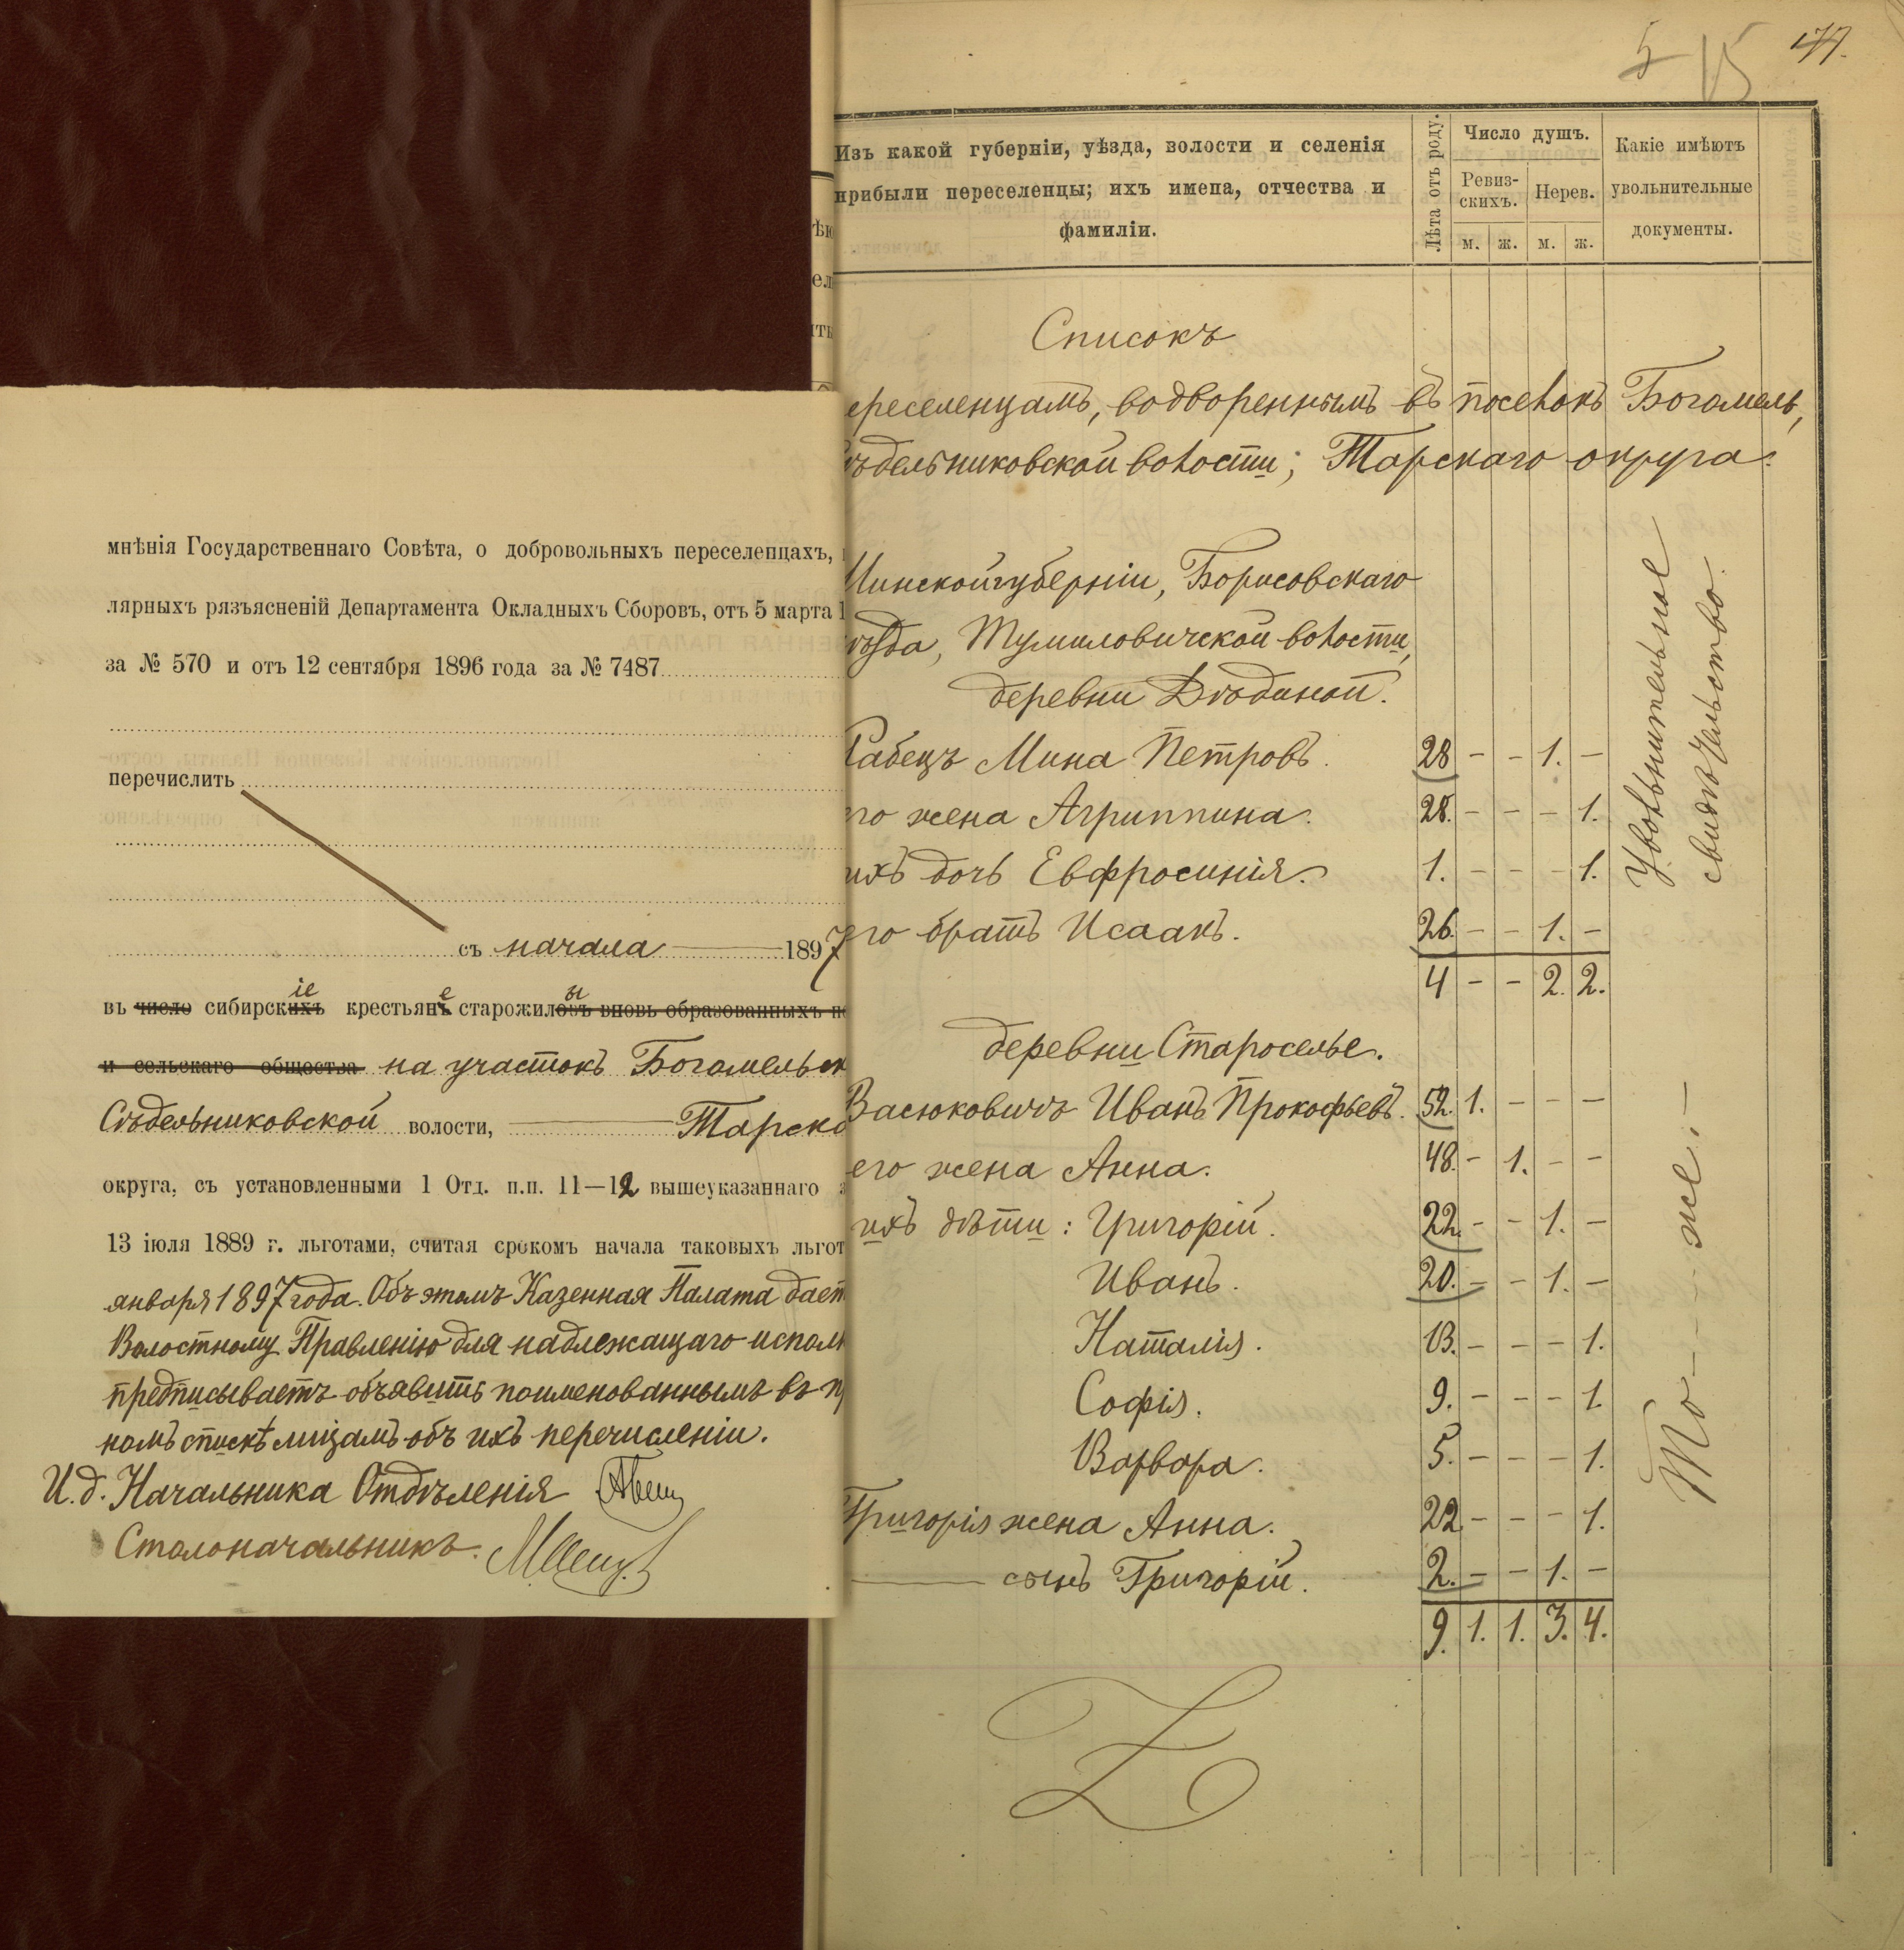 мнѣнія Государственнаго Совѣта, о добровольныхъ переселенцахъ,
лярныхъ рязъясненій Департамента Окладныхъ Сборовъ, отъ 5 марта 1
за № 570 и отъ 12 сентября 1896 года за № 7487
перечислить
съ начала 1897
въ число сибирскихъ іе крестьянъ е старожиловъ ы вновь образованныхъ
и сельскаго общества на участокъ Богомельск
Сѣдельниковской волости, Тарско
округа, съ установленными 1 Отд. п.п. 11—12 вышеуказаннаго
13 іюля 1889 г. льготами, считая срокомъ начала таковыхъ льгот
января 1897 года. Объ этомъ Казенная Палата дает
Волостному Правленію для надлежащаго исполн
предписываетъ объявить поименованнымъ въ пр
номъ спискѣ лицамъ объ ихъ перечисленіи.
И.д. Начальника Отдѣленія
Столоначальникъ.
5 15 177.
Изъ какой губерніи, уѣзда, волости и селенія
прибыли переселенцы; ихъ имена, отчества и
фамиліи.
Лѣта отъ роду.
Число душъ.
Ревиз-
скихъ.
Нерев.
м. ж. м. ж.
Какіе имѣютъ
увольнительные
документы.
Списокъ
ереселенцамъ, водвореннымъ въ поселокъ Богомель,
ѣдельниковской волости; Тарскаго округа.
Минской губерніи, Борисовскаго
ѣзда, Тумиловичской волости,
деревни Дѣдиной.
Рабецъ Мина Петровъ. 28 - - 1. -
его жена Агриппина. 28. - - - 1.
ихъ дочь Евфросинія. 1. - - - 1.
его братъ Исаакъ. 26. - - 1. -
4 - - 2. 2.
Увольнительное
свидѣтельство.
деревни Староселье.
Васюковичъ Иванъ Прокофьевъ. 52. 1. - - -
его жена Анна. 48. - 1. - -
ихъ дѣти: Григорій. 22. - - 1. -
Иванъ. 20. - - 1. -
Наталія. 13. - - - 1.
Софія. 9. - - - 1.
Варвара. 5. - - - 1.
Григорія жена Анна. 22. - - - 1.
— сынъ Григорій. 2. - - 1. -
9. 1. 1. 3. 4.
То — же. —